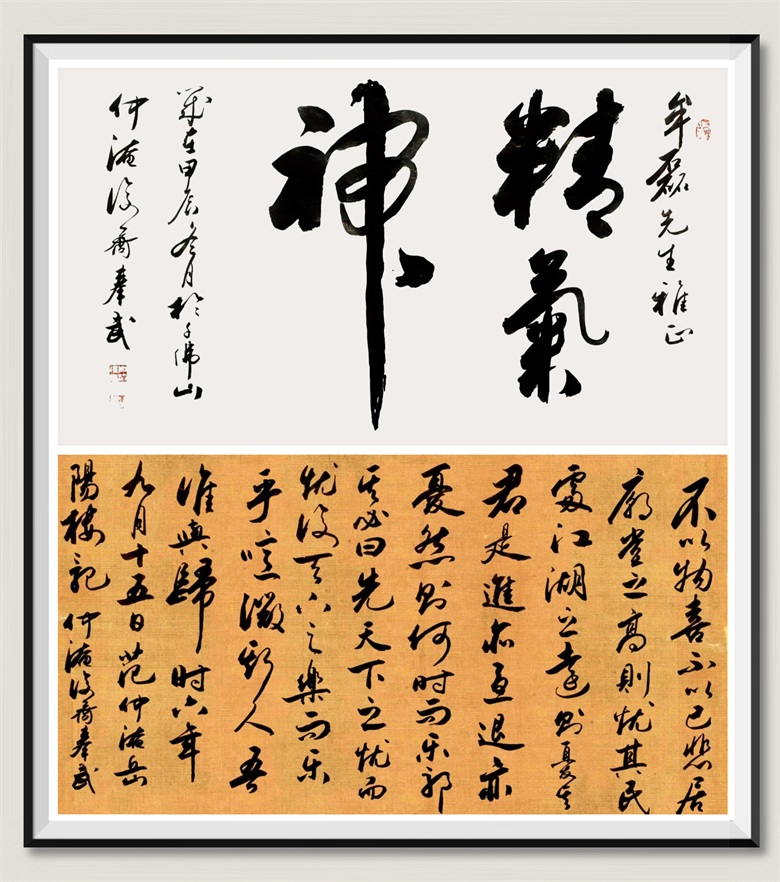 牟磊先生雅正
精氣
神
歲在甲辰冬月於千佛山
仲淹後裔奉武
不以物喜不以己悲居
廟堂之高則憂其民
處江湖之遠則憂其
君是進亦憂退亦
憂然則何時而樂耶
其必曰先天下之憂而
憂後天下之樂而樂
乎噫微斯人吾
誰與歸 时六年
九月十五日范仲淹岳
陽樓記 仲淹後裔奉武